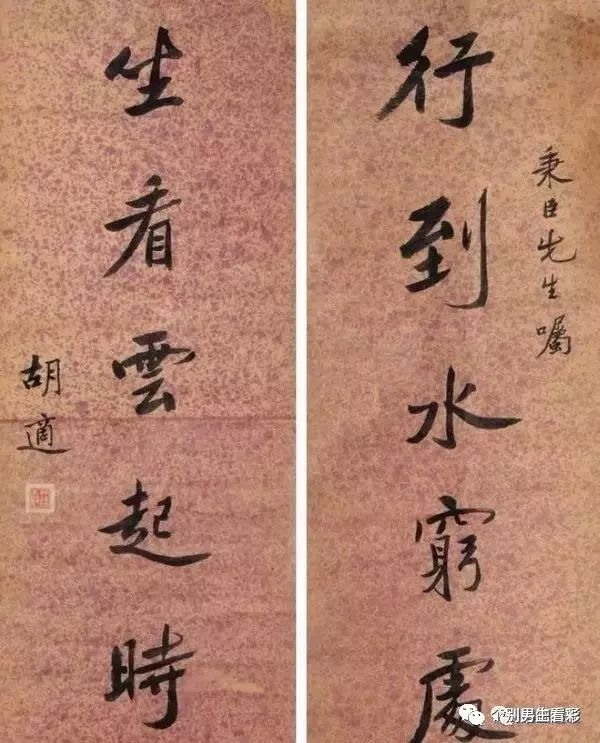 秉臣先生囑
行到水窮處
坐看雲起時
胡適
个别男生看彩